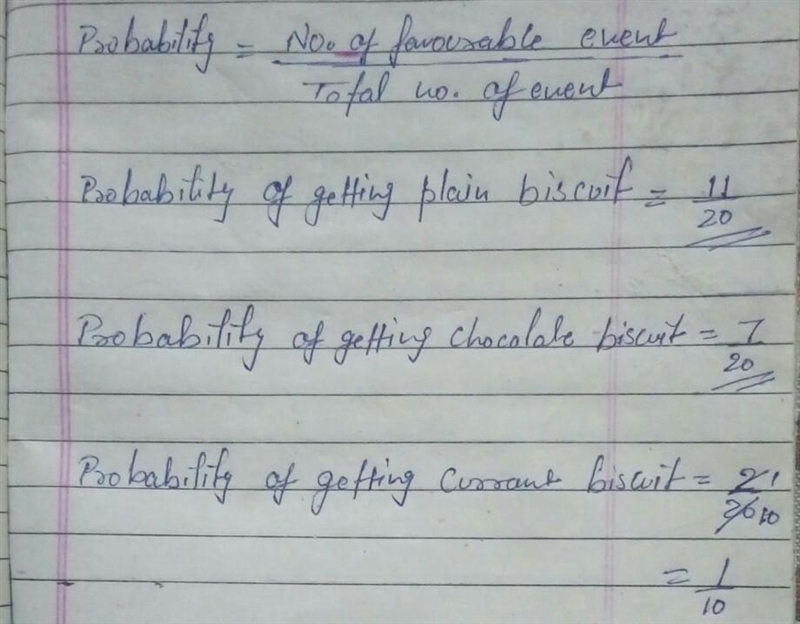 Probability = No. of favourable event
Total no. of event
Probability of getting plain biscuit = 11
20
Probability of getting chocolate biscuit = 7
20
Probability of getting currant biscuit = 2 1
20 10
= 1
10